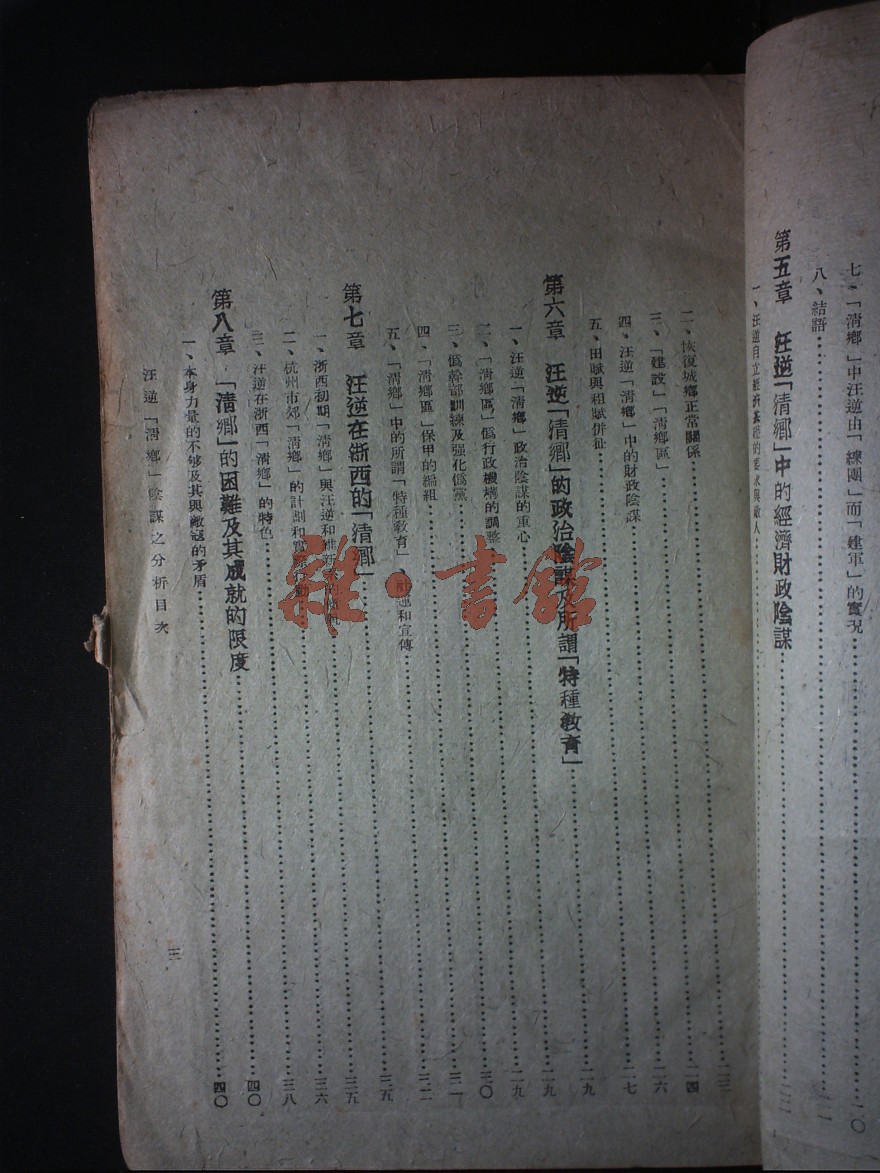 七、「清鄉」中汪逆由「練團」而「建軍」的實況……二〇
八、結語
第五章 汪逆「清鄉」中的經濟財政陰謀
一、汪逆自立經濟基礎的要求與敵人
二、恢復城鄉正常關係……二四
三、「建設」「清鄉區」……二六
四、汪逆「清鄉」中的財政陰謀……二七
五、田賦與租賦併征……二九
第六章 汪逆「清鄉」的政治陰謀及所謂「特種教育」……二九
一、汪逆「清鄉」政治陰謀的重心……二九
二、「清鄉區」僞行政機構的調整……三〇
三、僞幹部訓練及强化僞黨……三一
四、「清鄉區」保甲的編組……三二
五、「清鄉」中的所謂「特種教育」、社運和宣傳……三五
第七章 汪逆在浙西的「清鄉」……三五
一、浙西初期「清鄉」與汪逆和維新……三六
二、杭州市郊「清鄉」的計劃和實際行動……三八
三、汪逆在浙西「清鄉」的特色……四〇
第八章 「清鄉」的困難及其成就的限度……四〇
一、本身力量的不够及其與敵寇的矛盾
汪逆「清鄉」陰謀之分析目次
三
雜·書館